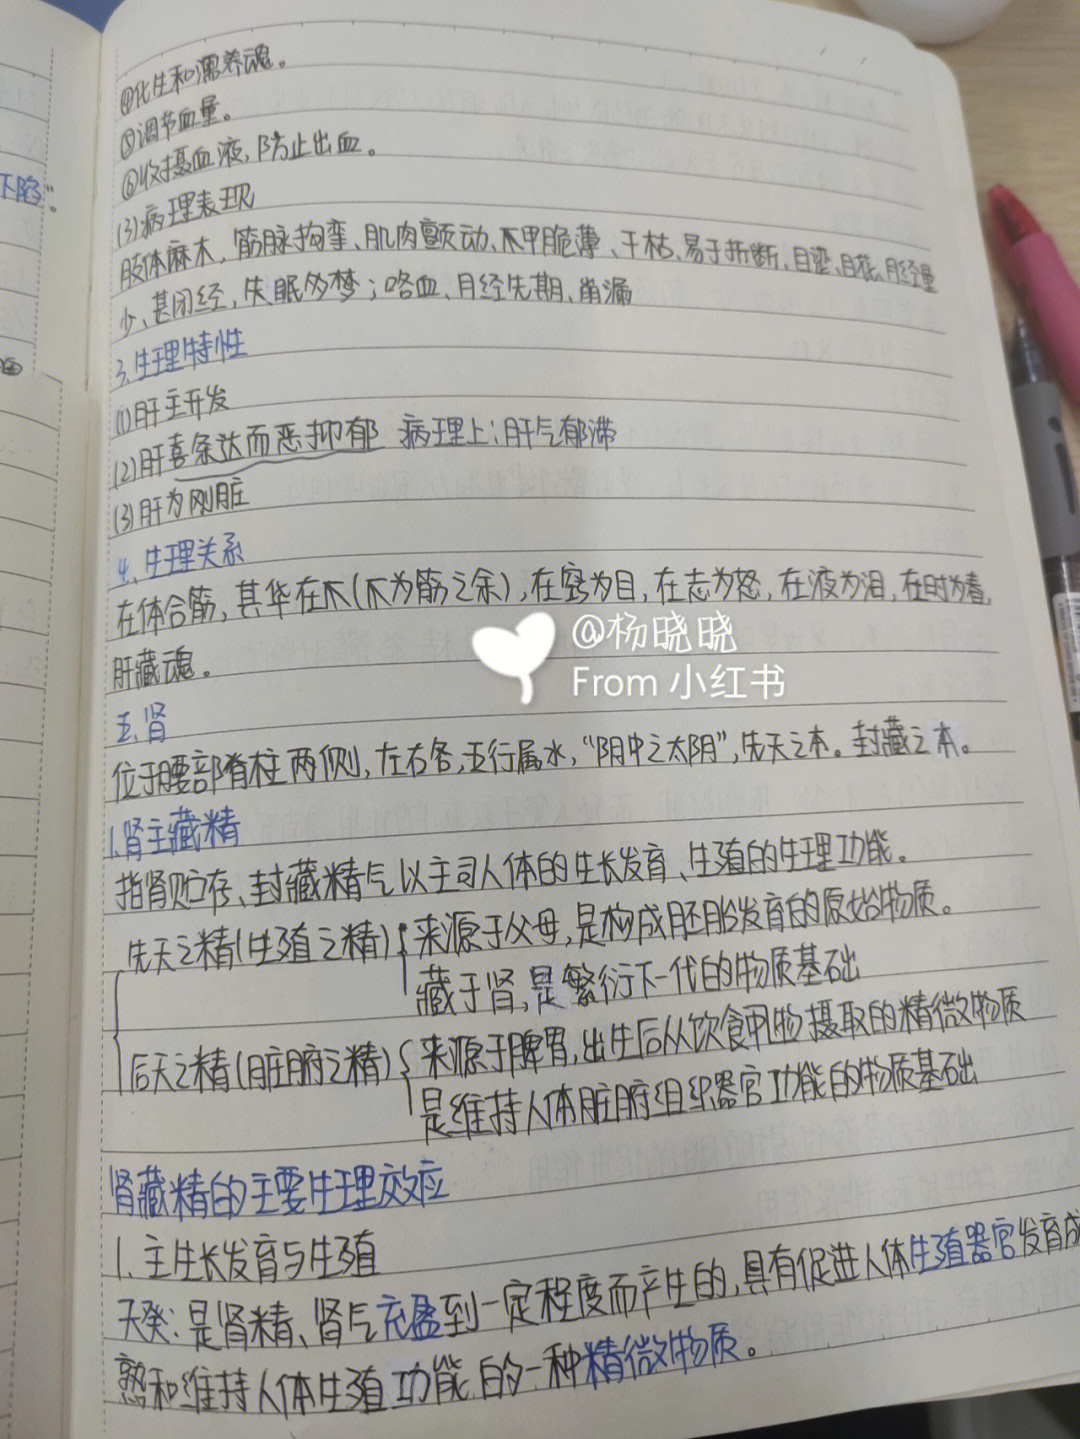 下陷”。
④化生和濡养魂。
⑤调节血量。
⑥收摄血液,防止出血。
(3)病理表现
肢体麻木,筋脉拘挛、肌肉颤动、爪甲脆薄、干枯、易于折断、目涩、目眩、月经量
少、甚闭经,失眠多梦;咯血、月经先期、崩漏
3、生理特性
(1)肝主升发
(2)肝喜条达而恶抑郁 病理上:肝气郁滞
(3)肝为刚脏
4、生理关系
在体合筋,其华在爪(爪为筋之余),在窍为目,在志为怒,在液为泪,在时为春,
肝藏魂。
@杨晓晓
From 小红书
五、肾
位于腰部脊柱两侧,左右各,五行属水,“阴中之太阴”,先天之本。封藏之本。
1.肾主藏精
指肾贮存、封藏精气以主司人体的生长发育、生殖的生理功能。
先天之精(生殖之精){来源于父母,是构成胚胎发育的原始物质。
藏于肾,是繁衍下一代的物质基础
后天之精(脏腑之精){来源于脾胃,出生后从饮食中摄取的精微物质
是维持人体脏腑组织器官功能的物质基础
肾藏精的主要生理效应
1、主生长发育与生殖
天癸:是肾精、肾气充盈到一定程度而产生的,具有促进人体生殖器官发育成
熟和维持人体生殖功能的一种精微物质。